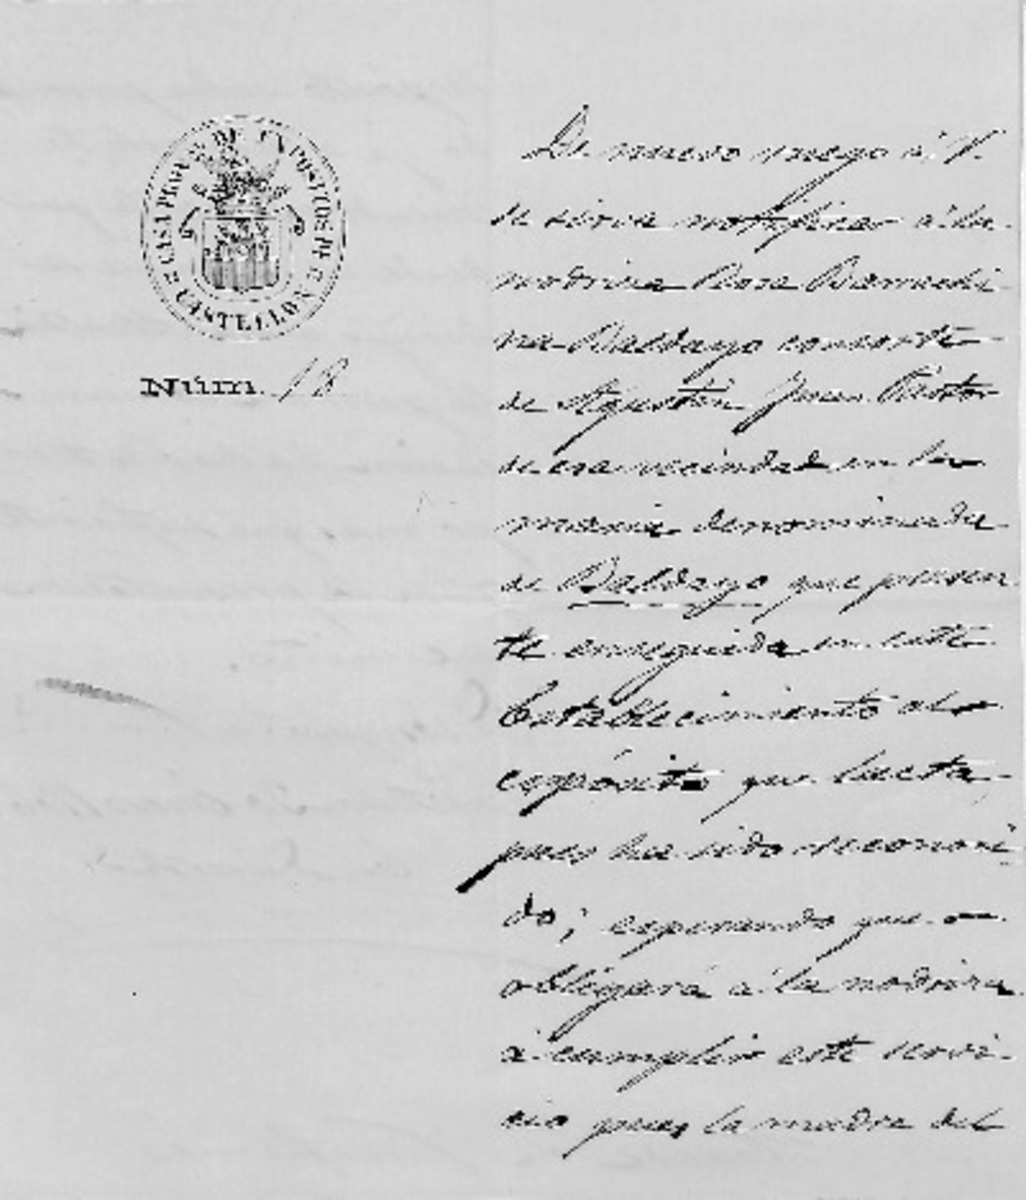 CASA PROVAL DE EXPOSITOS DE
CASTELLON
Núm. 18
De nuevo ruego á V.
se sirva notificar á la
nodriza Rosa
na Baldayo consorte
de Agustín Juan Pastor
de esa vecindad en la
masia denominada
de Baldayo que presen
te enseguida en este
Establecimiento al
expósito que lacta
pues ha sido reconoci
do; esperando que
obligará á la nodriza
á cumplir este servi-
cio pues la madre del